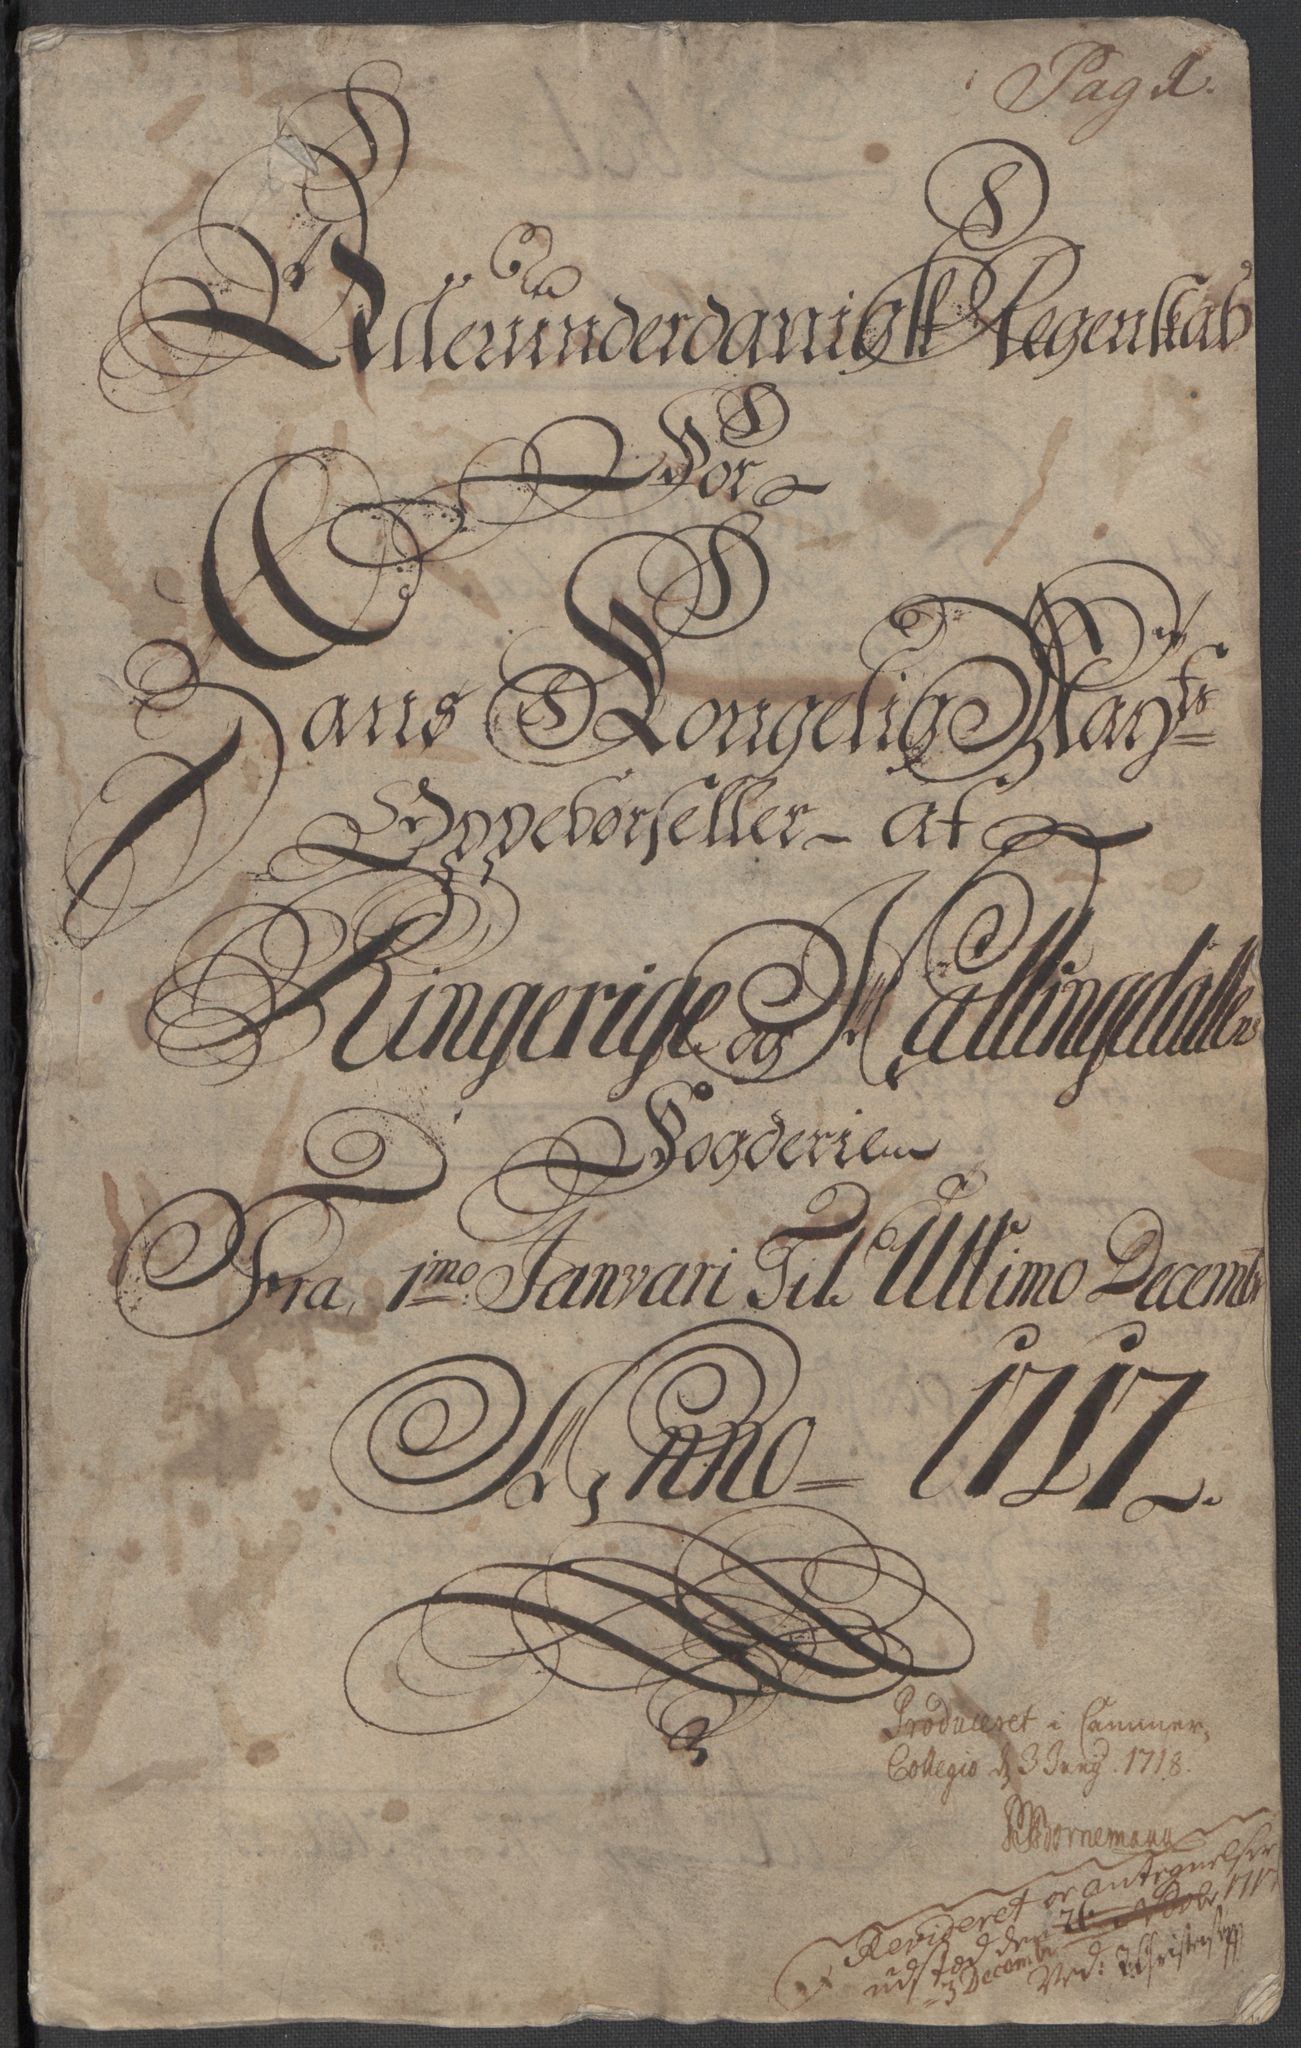 Pag 1.
Alleründerdanigst Regenskab
For
Hans Kongelig Mayts
Oppebørseller af
Ringerige og Hallingdallens
Fogderie
Fra 1mo Janvari Til Ultimo Decembr
Anno 1717.
Produceret i Cammer
Collegio d 3 Juny 1718.
Bornemann
Revideret or antegnelser
udsted den 26 octobr 1717
3 Decembr Ved: Christensen